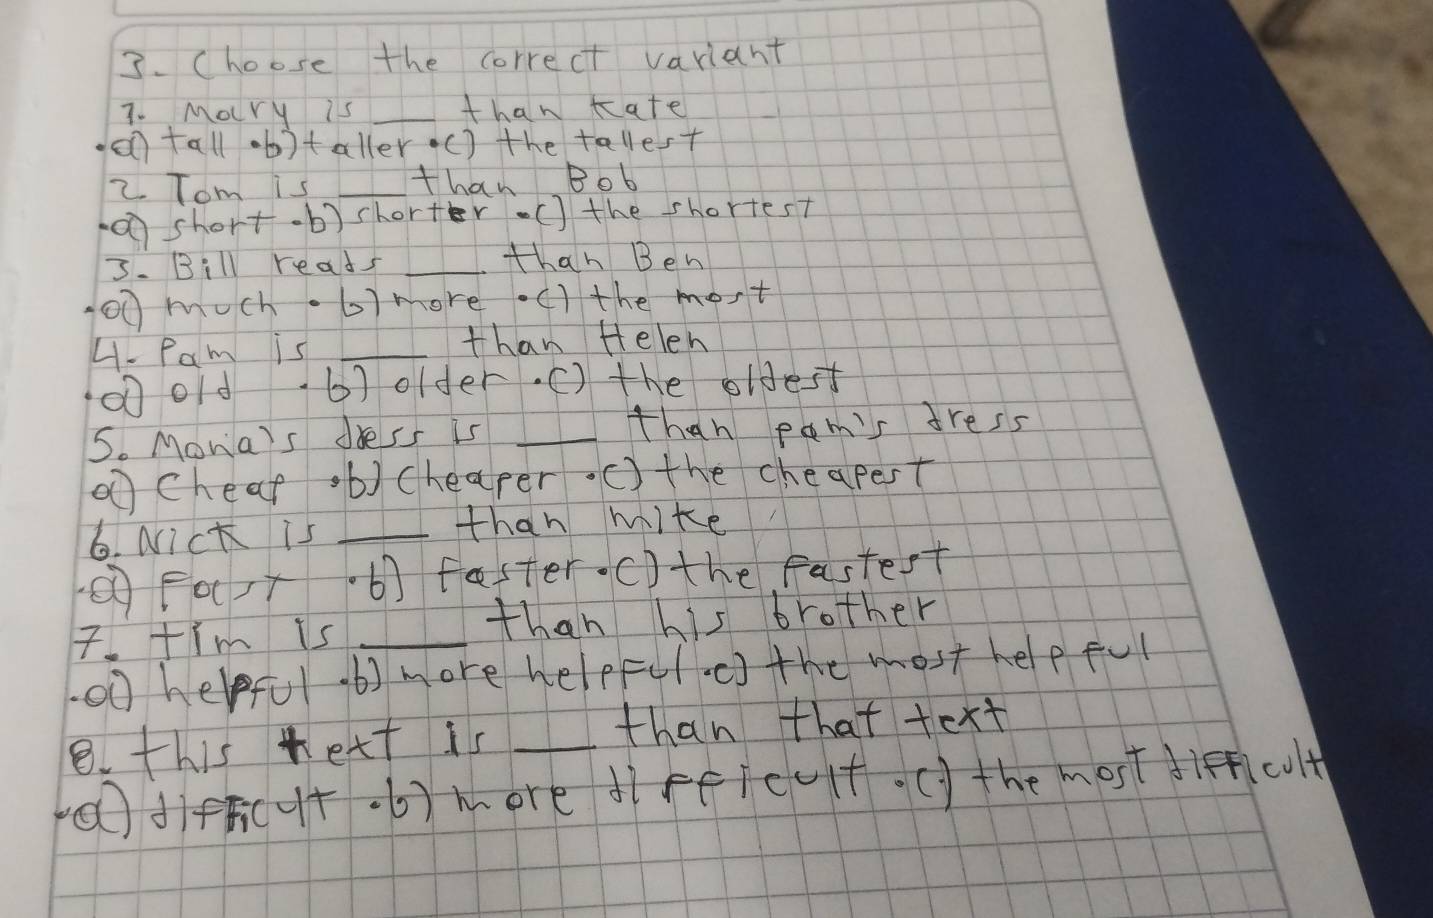 3. Choose the correct variant
1. Mary is ___ than Kate
.a) tall .b) taller .c) the tallest
2 Tom is ___ than Bob
.a) short .b) shorter .c) the shortest
3. Bill reads ___ than Ben
.a) much .b) more .c) the most
4. Pam is ___ than Helen
.a) old .b) older .c) the oldest
5. Maria's dress is ___ than pam's dress
a) cheap .b) cheaper .c) the cheapest
6. Nick is ___ than mike
.a) Fast .b) faster .c) the fastest
7. tim is ___ than his brother
.a) helpful .b) more helpful .c) the most helpful
8. this text is ___ than that text
.a) difficult .b) more difficult .c) the most difficult